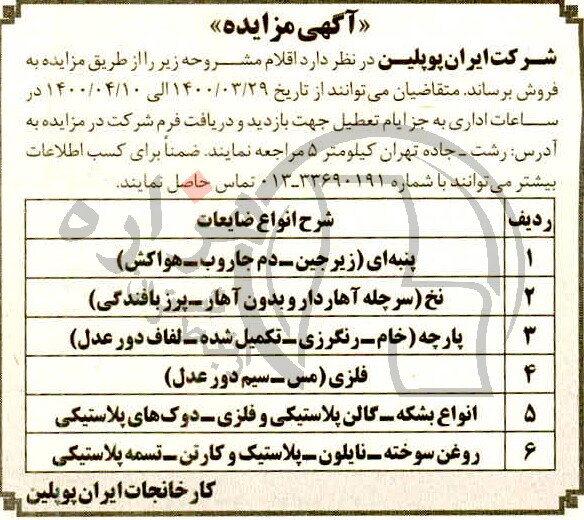 «آگهی مزایده»
شرکت ایران پوپلین در نظر دارد اقلام مشروحه زیر را از طریق مزایده به
فروش برساند. متقاضیان می توانند از تاریخ ۱۴۰۰/۰۳/۲۹ الی ۱۴۰۰/۰۴/۱۰ در
ساعات اداری به جز ایام تعطیل جهت بازدید و دریافت فرم شرکت در مزایده به
آدرس: رشت ـ جاده تهران کیلومتر ۵ مراجعه نمایند. ضمناً برای کسب اطلاعات
بیشتر می توانند با شماره ۳۳۶۹۰۱۹۱ـ۰۱۳ تماس حاصل نمایند.
ردیف شرح انواع ضایعات
۱ پنبه‌ای (زیرچین ـ دم جاروب ـ هواکش)
۲ نخ (سرچله آهاردار و بدون آهار ـ پرز بافندگی)
۳ پارچه (خام ـ رنگرزی ـ تکمیل شده ـ لفاف دور عدل)
۴ فلزی (مس ـ سیم دور عدل)
۵ انواع بشکه ـ گالن پلاستیکی و فلزی ـ دوک‌های پلاستیکی
۶ روغن سوخته ـ نایلون ـ پلاستیک و کارتن ـ تسمه پلاستیکی
کارخانجات ایران پوپلین